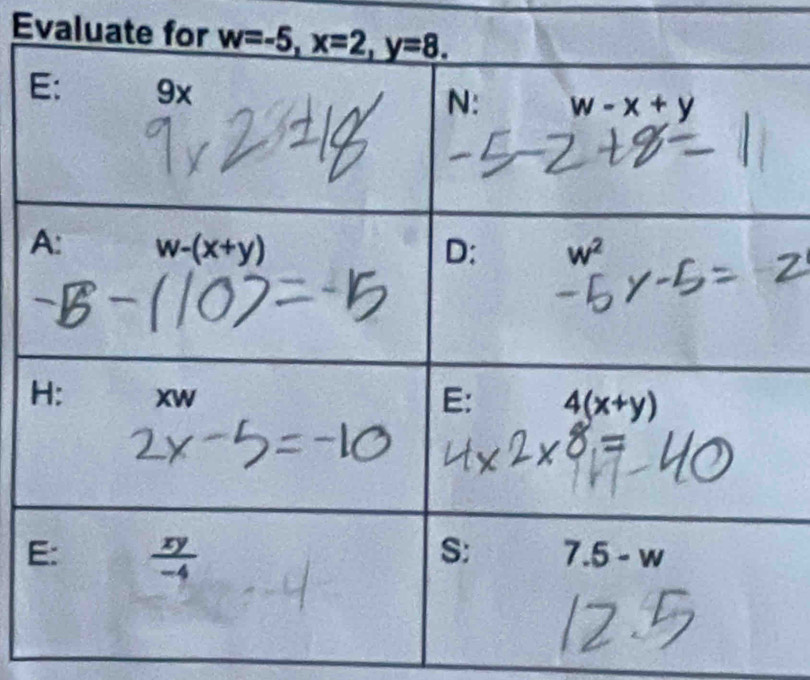 Evaluate for w=-5, x=2, y=8.
E: 9x
9x2=18
N: w - x + y
-5-2+8=1
A: w-(x+y)
-5-(10)=-15
D: w²
-5x-5=
H: xw
2x-5=-10
E: 4(x+y)
4x2x8=
40
E: xy/-4
-4
S: 7.5 - w
12.5